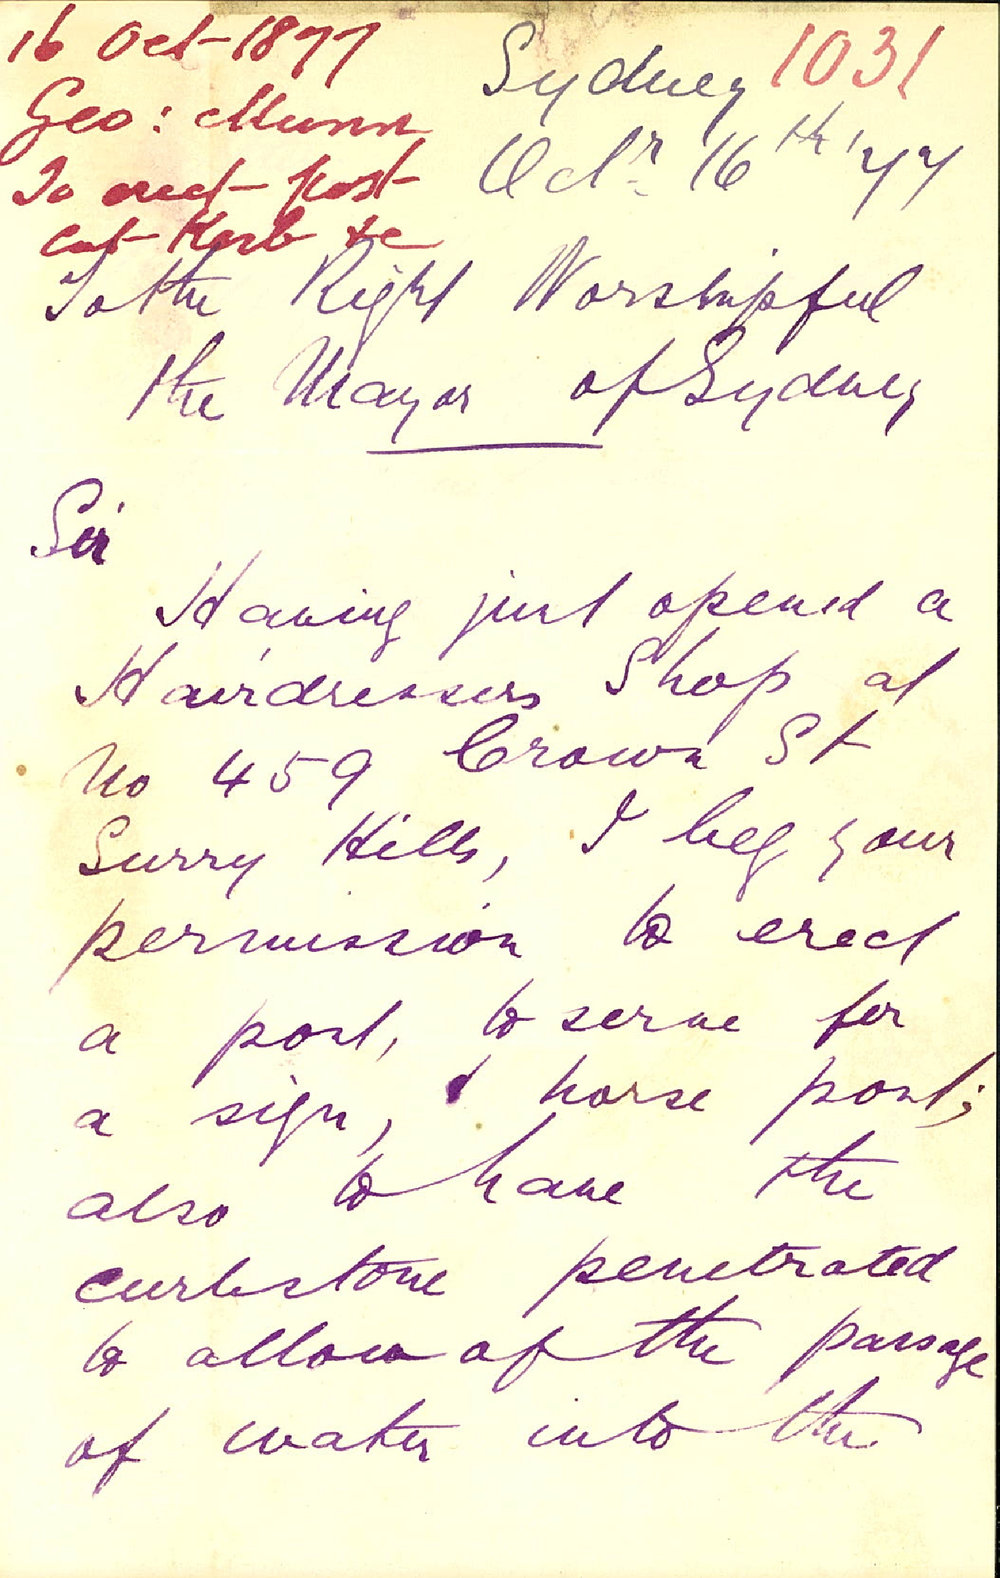 16 Oct 1877
Geo: Munn
To erect post
cut Kerb &c
1031
Sydney
Octr. 16th '77
To the Right Worshipful
the Mayor of Sydney
Sir
Having just opened a
Hairdressers Shop at
No 459 Crown St
Surry Hills, I beg your
permission to erect
a post, to serve for
a sign, & horse post;
also to have the
curbstone penetrated
to allow of the passage
of water into the